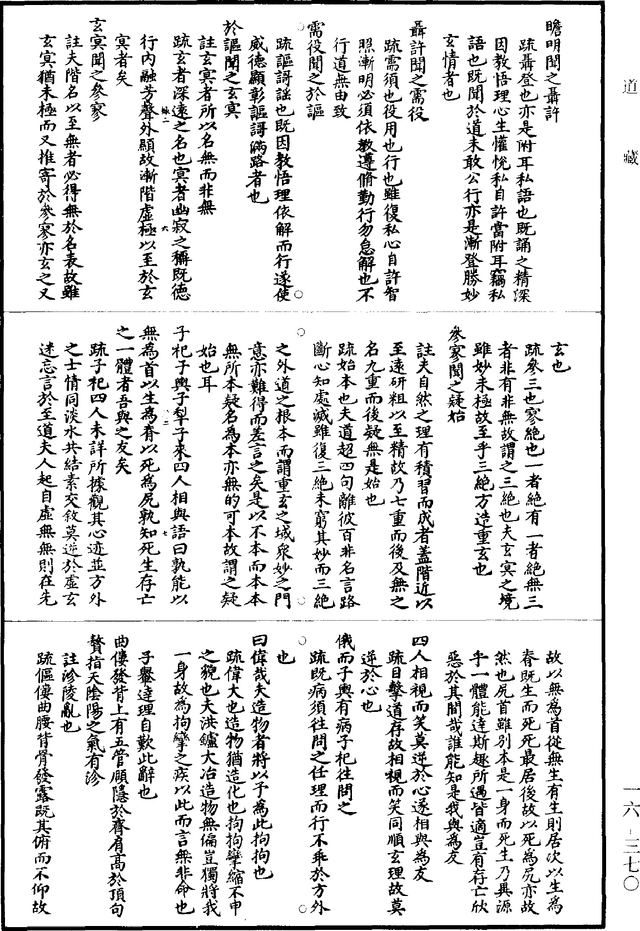 道藏
瞻明聞之聶許
疏聶登也亦是附耳私語也既誦之精深
因教悟理心生懽悅私自許當附耳竊私
語也既聞於道未敢公行亦是漸登勝妙
玄情者也
聶許聞之需役
疏需須也役用也行也雖復私心自許智
照漸明必須依教遵脩勤行勿怠解也不
行道無由致
需役聞之於謳
疏謳謌謠也既因教悟理依解而行遂使
威德顯彰謳謌滿路者也
於謳聞之玄冥
註玄冥者所以名無而非無
疏玄者深遠之名也冥者幽寂之稱既德
行內融芳聲外顯故漸階虛極以至於玄
冥者矣
玄冥聞之參寥
註夫階名以至無者必得無於名表故雖
玄冥猶未極而又推寄於參寥亦玄之又
玄也
疏參三也寥絕也一者絕有一者絕無三
者非有非無故謂之三絕也夫玄冥之境
雖妙未極故至乎三絕方造重玄也
參寥聞之疑始
註夫自然之理有積習而成者蓋階近以
至遠研粗以至精故乃七重而後及無之
名九重而後疑無是始也
疏始本也夫道超四句離彼百非名言路
斷心知處滅雖復三絕未窮其妙而三絕
之外道之根本而謂重玄之域衆妙之門
意亦難得而差言之矣是以不本而本本
無所本疑名為本亦無的可本故謂之疑
始也耳
子祀子輿子犁子來四人相與語曰孰能以
無為首以生為脊以死為尻孰知死生存亡
之一體者吾與之友矣
疏子祀四人未詳所據觀其心迹並方外
之士情同淡水共結素交敘莫逆於虛玄
述忘言於至道夫人起自虛無無則在先
故以無為首從無生有生則居次以生為
脊既生而死死最居後故以死為尻亦故
然也尻首雖別本是一身而死生乃異源
乎一體能達斯趣所遇皆適豈有存亡欣
惡於其間哉誰能知是我與為友
四人相視而笑莫逆於心遂相與為友
疏目擊道存故相視而笑同順玄理故莫
逆於心也
俄而子輿有病子祀往問之
疏既病須往問之任理而行不乖於方外
也
曰偉哉夫造物者將以予為此拘拘也
疏偉大也造物猶造化也拘拘攣縮不申
之貌也夫洪鑪大冶造物無偏豈獨將我
一身故為拘攣之疾以此而言無非命也
子輿達理自歎此辭也
曲僂發背上有五管頤隱於齊肩高於頂句
贅指天陰陽之氣有沴
註沴陵亂也
疏傴僂曲腰背骨發露既其俯而不仰故
一六-三七〇